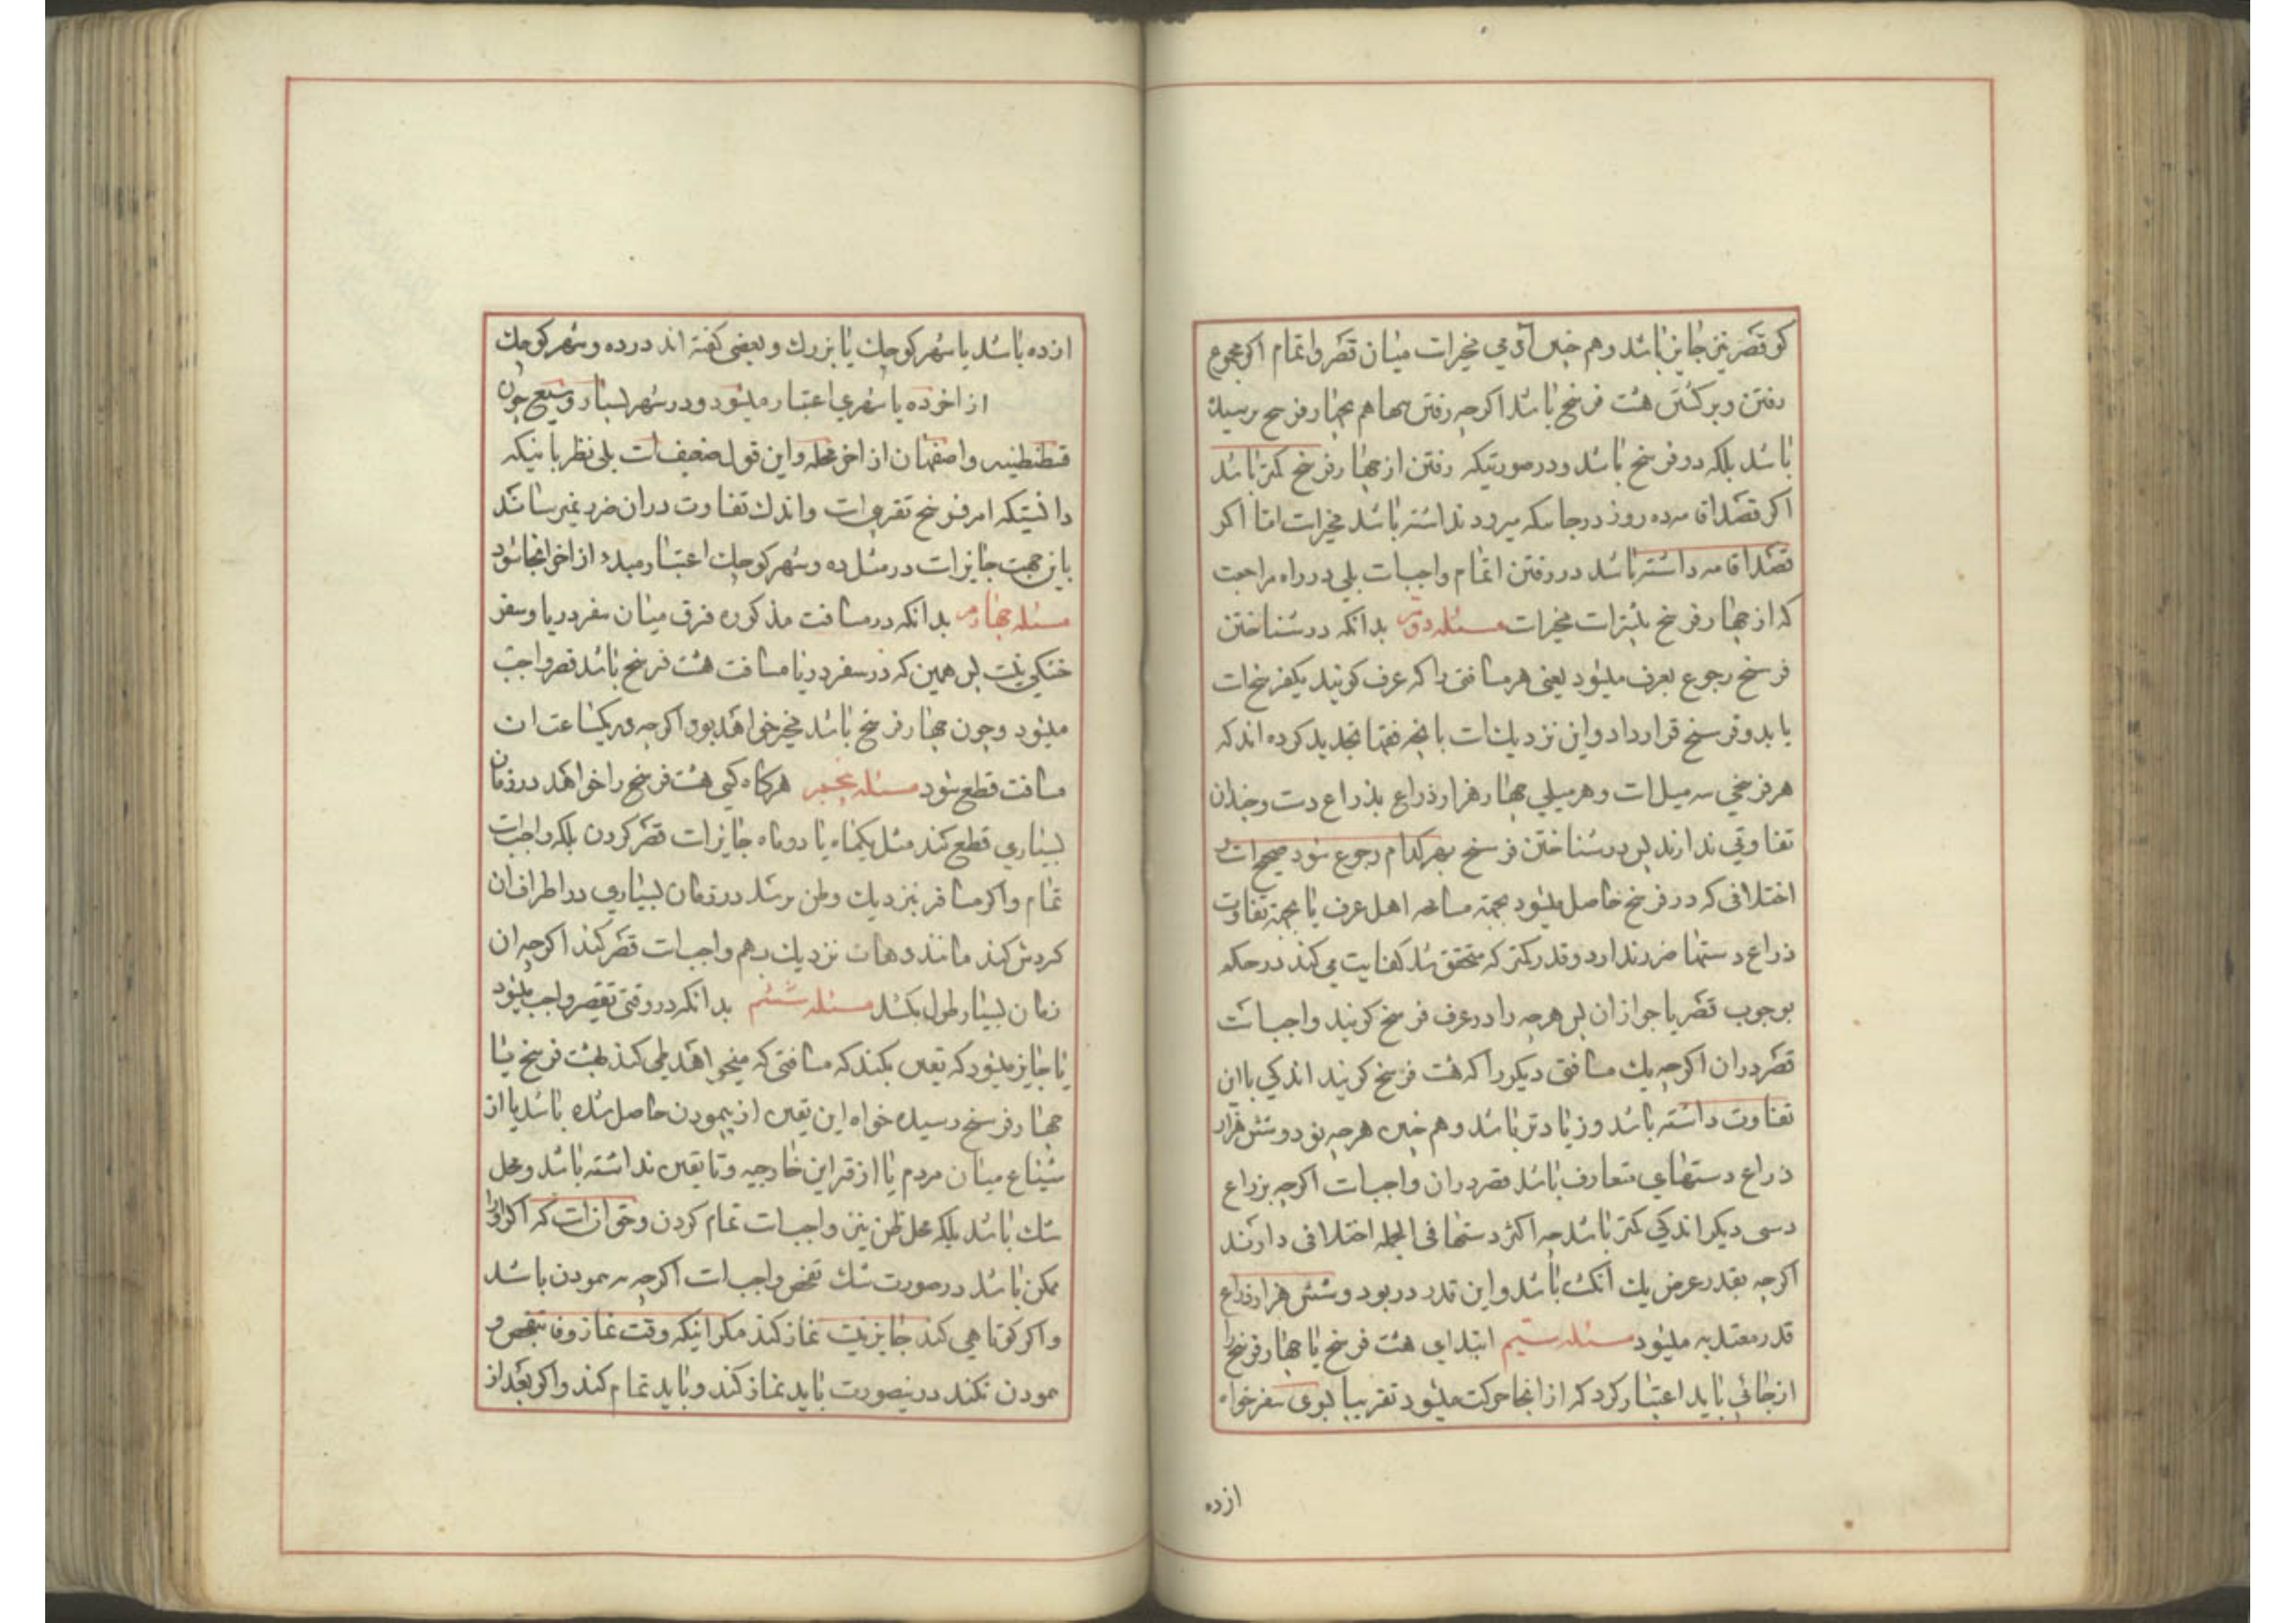 کو قصر نیز جایز باشد و هم چنین آدمی مخیرات میان قصر و اتمام اکر مجموع
رفتن و برکشتن هشت فرسخ باشد اکرچه رفتن تنها هم بچهار فرسخ نرسیده
باشد بلکه دو فرسخ باشد و درصورتیکه رفتن از چهار فرسخ کمتر باشد
اکر قصد اقامه ده روز درجائیکه میرود نداشته باشد مخیرات اما اکر
قصد اقامه داشته باشد در رفتن اتمام واجبات بلی در راه مراجعت
که از چهار فرسخ بیشترات مخیرات مسئله دویم بدانکه در شناختن
فرسخ رجوع بعرف میشود یعنی هر مسافتی را که عرف کویند یکفرسخ ات
باید و فرسخ قرار داد و این نزدیک ات بانچه فقها تحدید کرده اند که
هر فرسخی سه میل ات و هر میلی چهار هزار ذراع بذراع دست و چندان
تفاوتی ندارند پس در شناختن فرسخ بهر کدام رجوع شود صحیح ات و
اختلافی که در فرسخ حاصل میشود بجهة مسامحه اهل عرف یا بجهة تفاوت
ذراع دستها ضرر ندارد و قدر کمتر که متحقق شد کفایت می کند در حکم
بوجوب قصر یا جواز ان پس هرچه را در عرف فرسخ کویند واجبات
قصر در ان اکرچه یک مسافتی دیکر را که هشت فرسخ کویند اندکی با این
تفاوت داشته باشد و زیادتر باشد و هم چنین هرچه نود و شش هزار
ذراع دستهای متعارف باشد قصر در ان واجبات اکرچه بزراع
دستی دیکر اندکی کمتر باشد چه اکثر دستها فی الجمله اختلافی دارند
اکرچه بقدر عرض یک انکشت باشد و این قدر در نود و شش هزار ذراع
قدر معتد به میشود مسئله سیم ابتدای هشت فرسخ یا چهار فرسخ را
از جائی باید اعتبار کرد که از انجا حرکت میشود تقریبا بسوی سفر خواه
ازده
ازده باشد یا شهر کوچک یا بزرک و بعضی کفته اند در ده و شهر کوچک
از اخر ده یا شهری اعتبار میشود و در شهر بسیار وسیع چون
قسطنطنیه و اصفهان از اخر محله و این قول ضعیف ات بلی نظر بانیکه
دانستیکه امر فرسخ تقریبی ات و اندک تفاوت دران ضرر نمیرساند
باین جهت جایزات در مثل ده و شهر کوچک اعتبار مبدء از اخر انجا شود
مسئله چهارم بدانکه در مسافت مذکوره فرق میان سفر دریا و سفر
خشکی نیست پس همین که در سفر دریا مسافت هشت فرسخ باشد قصر واجب
میشود و چون چهار فرسخ باشد مخیر خواهد بود اکرچه در یکساعت ان
مسافت قطع شود مسئله پنجم هرکاه کسی هشت فرسخ را خواهد در زمان
بسیاری قطع کند مثل یکماه یا دو ماه جایزات قصر کردن بلکه واجبات
تمام و اکر مسافر بنزدیک وطن برسد در زمان بسیاری در اطراف ان
کردش کند مانند دهات نزدیک بهم واجبات قصر کند اکرچه ان
زمان بسیار طول بکشد مسئله ششم بدانکه در وقتی تقصیر واجب میشود
یا جایز میشود که تعین بکند که مسافتی که میخواهد طی کند بهشت فرسخ یا
چهار فرسخ رسیده خواه این یقین از پیمودن حاصل شده باشد یا از
شیاع میان مردم یا از قراین خارجیه و تا یقین نداشته باشد و محل
شک باشد بلکه محل ظن نیز واجبات تمام کردن و حق ان ات که اکر او را
ممکن باشد در صورت شک تفحص واجبات اکرچه به پیمودن باشد
و اکر کوتاهی کند جایز نیست نماز کند مکر اینکه وقت نماز وفا بتفحص و
پیمودن نکند در نیصورت باید نماز کند و باید تمام کند و اکر بعد از